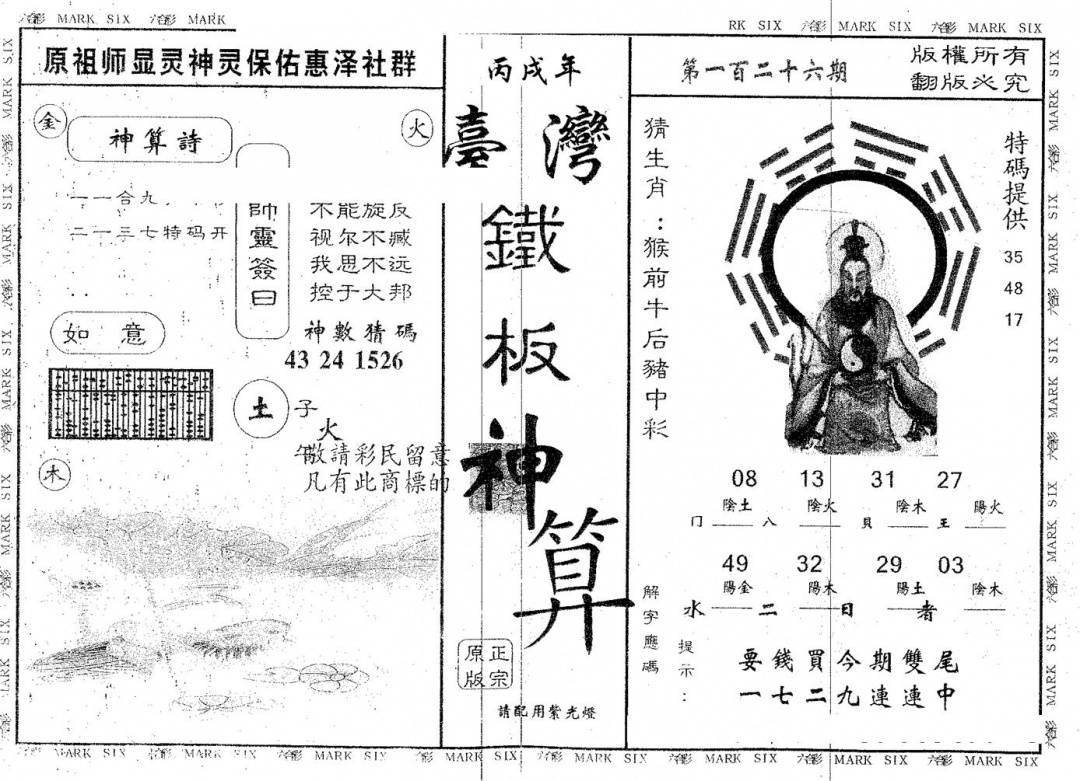 六合彩 MARK SIX 六合彩 MARK
RK SIX 六合彩 MARK SIX 六合彩 MARK SIX
原祖师显灵神灵保佑惠泽社群
金
神算詩
火
一一合九
二一三七特码开
如 意
木
師靈簽曰
不能旋反
视尔不臧
我思不远
控于大邦
神數猜碼
43 24 1526
土
子
火
敬請彩民留意
凡有此商標的
丙戌年
臺灣
鐵
板
神
算
正宗
原版
請配用紫光燈
第一百二十六期
版權所有
翻版必究
猜生肖：猴前牛后豬中彩
特碼提供
35
48
17
08 13 31 27
陰土 陰火 陰木 陽火
门 八 貝 王
49 32 29 03
陽金 陽木 陽土 陰木
水 二 日 者
解字應碼
提示：
要錢買今期雙尾
一七二九連連中
MARK SIX 六合彩 MARK SIX 六合彩 MARK SIX 六合彩 MARK SIX 六合彩 MARK SIX 六合彩 MARK SIX 六合彩 MARK SIX 六合彩 MARK SIX